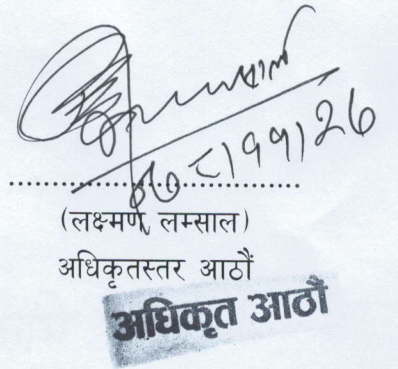 ७८।११।२६
(लक्ष्मण लम्साल)
अधिकृतस्तर आठौं
अधिकृत आठौं